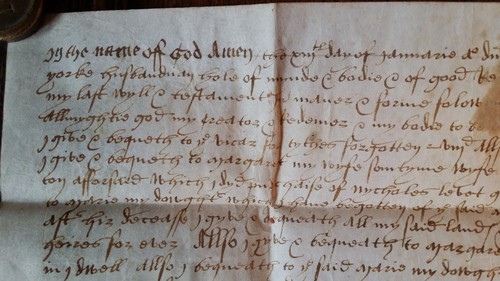 In the name off God Amen the xvijth day of Januarie
yorke husbandman hole of minde & bodie & of good
my last wyll & testament in maner & forme folow
allmyghtie god my creator & Redemer & my bodie to
I give & bequeth to ye vicar for tythes forgotten all
I give & bequeth to Margaret my wyfe somtyme wyfe
ton afforsaid which I dyd purchase of Nicholas Level
to Marie my dowghter which I have begotten of ye said
aftr hir decease I gyve & bequeath all my said land
heires for ever Allso I gyve & bequeath to Margare
in I dwell allso I bequeath to ye said Marie my dowgh